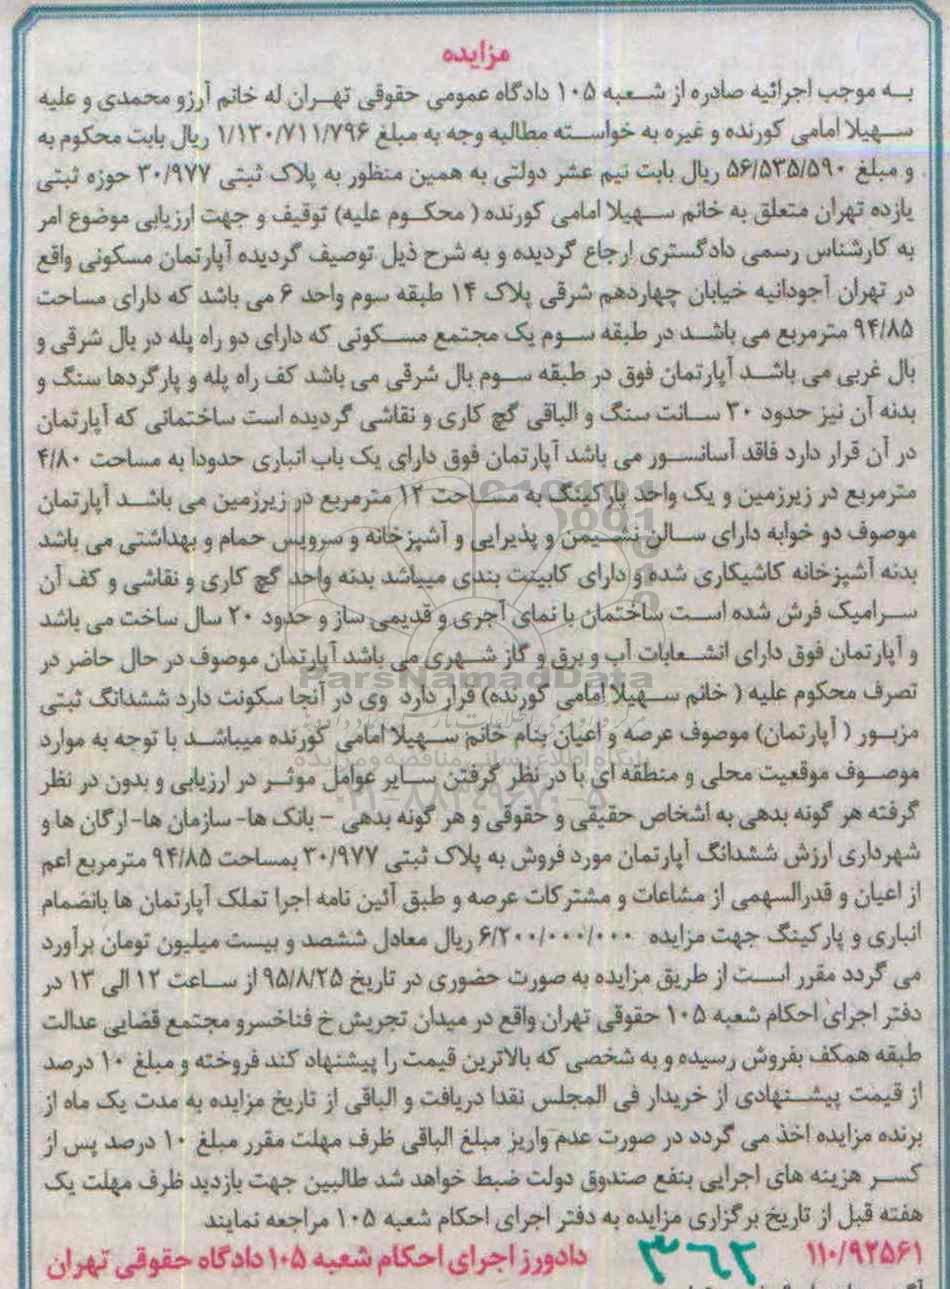 مزایده
به موجب اجرائیه صادره از شعبه ۱۰۵ دادگاه عمومی حقوقی تهران له خانم آرزو محمدی و علیه
سهیلا امامی کورنده و غیره به خواسته مطالبه وجه به مبلغ ۱/۱۳۰/۷۱۱/۷۹۶ ریال بابت محکوم به
و مبلغ ۵۶/۵۳۵/۵۹۰ ریال بابت نیم عشر دولتی به همین منظور به پلاک ثبتی ۳۰/۹۷۷ حوزه ثبتی
یازده تهران متعلق به خانم سهیلا امامی کورنده ( محکوم علیه) توقیف و جهت ارزیابی موضوع امر
به کارشناس رسمی دادگستری ارجاع گردیده و به شرح ذیل توصیف گردیده آپارتمان مسکونی واقع
در تهران آجودانیه خیابان چهاردهم شرقی پلاک ۱۴ طبقه سوم واحد ۶ می باشد که دارای مساحت
۹۴/۸۵ مترمربع می باشد در طبقه سوم یک مجتمع مسکونی که دارای دو راه پله در بال شرقی و
بال غربی می باشد آپارتمان فوق در طبقه سوم بال شرقی می باشد کف راه پله و پارگردها سنگ و
بدنه آن نیز حدود ۳۰ سانت سنگ و الباقی گچ کاری و نقاشی گردیده است ساختمانی که آپارتمان
در آن قرار دارد فاقد آسانسور می باشد آپارتمان فوق دارای یک باب انباری حدودا به مساحت ۴/۸۰
مترمربع در زیرزمین و یک واحد پارکینگ به مساحت ۱۲ مترمربع در زیرزمین می باشد آپارتمان
موصوف دو خوابه دارای سالن نشیمن و پذیرایی و آشپزخانه و سرویس حمام و بهداشتی می باشد
بدنه آشپزخانه کاشیکاری شده و دارای کابینت بندی میباشد بدنه واحد گچ کاری و نقاشی و کف آن
سرامیک فرش شده است ساختمان با نمای آجری و قدیمی ساز و حدود ۲۰ سال ساخت می باشد
و آپارتمان فوق دارای انشعابات آب و برق و گاز شهری می باشد آپارتمان موصوف در حال حاضر در
ParsNamadData
تصرف محکوم علیه ( خانم سهیلا امامی کورنده) قرار دارد وی در آنجا سکونت دارد ششدانگ ثبتی
مزبور ( آپارتمان) موصوف عرصه و اعیان بنام خانم سهیلا امامی کورنده میباشد با توجه به موارد
پایگاه اطلاع رسانی مناقصه و مزایده
موصوف موقعیت محلی و منطقه ای با در نظر گرفتن سایر عوامل موثر در ارزیابی و بدون در نظر
۰۲۱-۸۸۳۴۹۶۷۰-۵
گرفته هر گونه بدهی به اشخاص حقیقی و حقوقی و هر گونه بدهی – بانک ها- سازمان ها- ارگان ها و
شهرداری ارزش ششدانگ آپارتمان مورد فروش به پلاک ثبتی ۳۰/۹۷۷ بمساحت ۹۴/۸۵ مترمربع اعم
از اعیان و قدرالسهمی از مشاعات و مشترکات عرصه و طبق آئین نامه اجرا تملک آپارتمان ها بانضمام
انباری و پارکینگ جهت مزایده ۶/۲۰۰/۰۰۰/۰۰۰ ریال معادل ششصد و بیست میلیون تومان برآورد
می گردد مقرر است از طریق مزایده به صورت حضوری در تاریخ ۹۵/۸/۲۵ از ساعت ۱۲ الی ۱۳ در
دفتر اجرای احکام شعبه ۱۰۵ حقوقی تهران واقع در میدان تجریش خ فناخسرو مجتمع قضایی عدالت
طبقه همکف بفروش رسیده و به شخصی که بالاترین قیمت را پیشنهاد کند فروخته و مبلغ ۱۰ درصد
از قیمت پیشنهادی از خریدار فی المجلس نقدا دریافت و الباقی از تاریخ مزایده به مدت یک ماه از
برنده مزایده اخذ می گردد در صورت عدم واریز مبلغ الباقی ظرف مهلت مقرر مبلغ ۱۰ درصد پس از
کسر هزینه های اجرایی بنفع صندوق دولت ضبط خواهد شد طالبین جهت بازدید ظرف مهلت یک
هفته قبل از تاریخ برگزاری مزایده به دفتر اجرای احکام شعبه ۱۰۵ مراجعه نمایند
۱۱۰/۹۲۵۶۱ ۳۶۲ دادورز اجرای احکام شعبه ۱۰۵ دادگاه حقوقی تهران